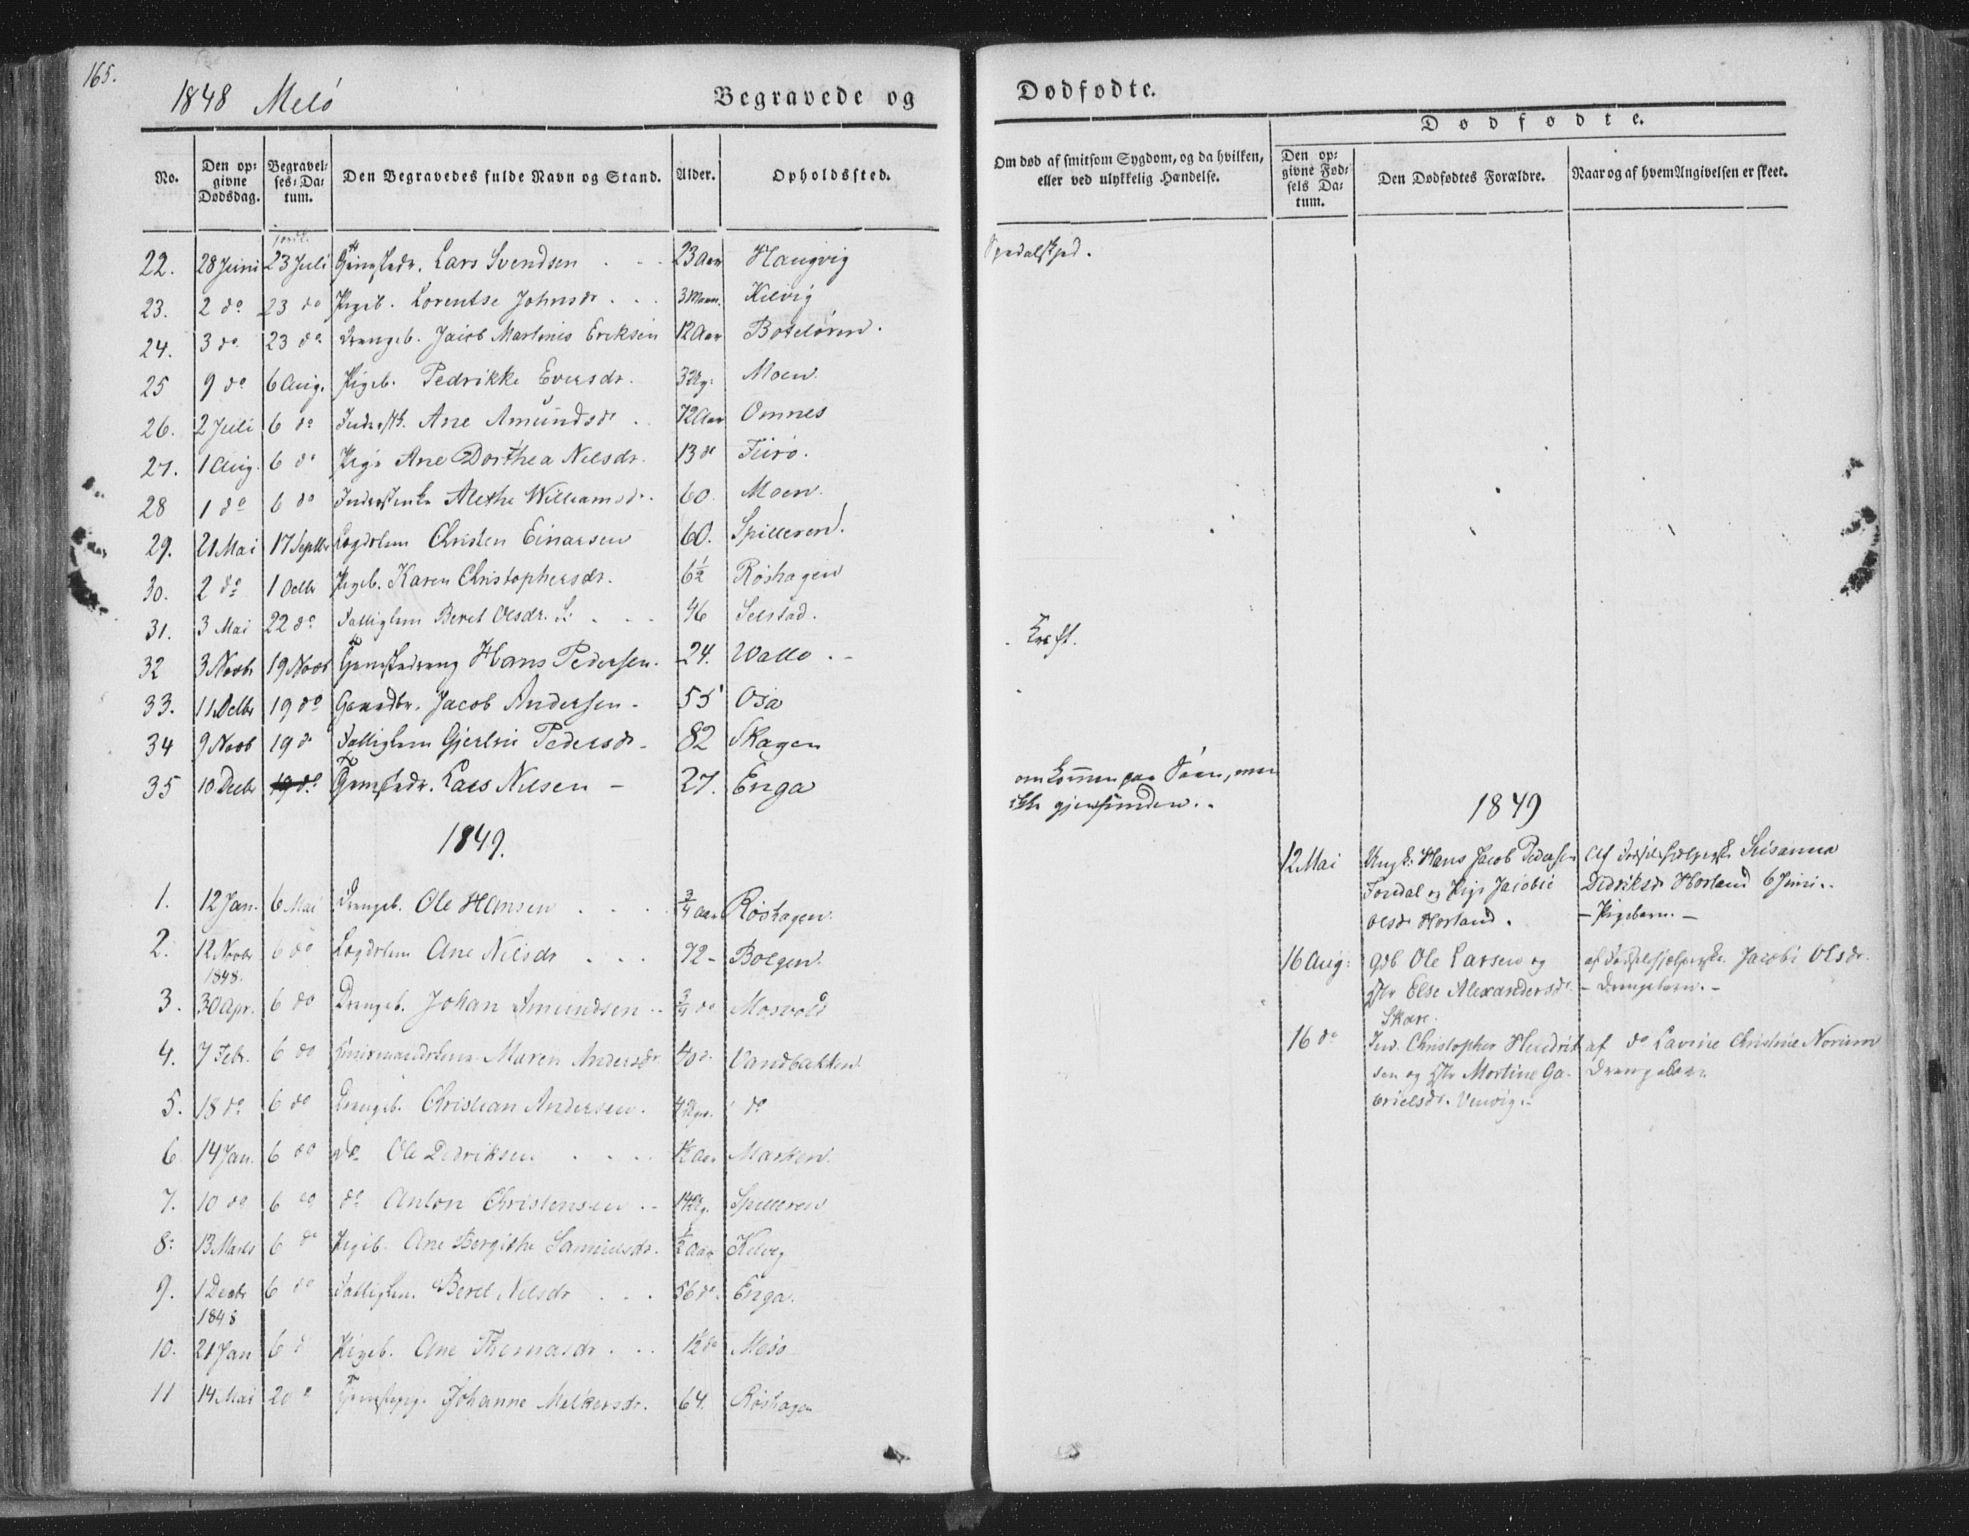 165.
1848 Melö
Begravede og
Dødfødte.
Dødfødte.
No.
Den op-
givne
Dødsdag.
Begravel-
ses-Da-
tum.
Den Begravedes fulde Navn og Stand.
Alder.
Opholdssted.
Om død af smitsom Sygdom, og da hvilken,
eller ved ulykkelig Hændelse.
Den op-
givne Fød-
sels Da-
tum.
Den Dødfødtes Forældre.
Naar og af hvem Angivelsen er skeet.
22. 28 Juni 23 Juli Lars Svendsen 23 Aar Haugvig Spedalskhed.
23. 2 do 23 do Pigeb. Lorentse Johnsdr. 3 Kilvig
24. 3 do 23 do Drengeb. Jacob Martinus Eriksen 12 Aar
25 9 do 6 Aug. Pigeb. Pedrikke Eversdr. 3 Ug. Moen.
26. 2 Juli 6 do Ane Amundsdr 72 Aar Omnes
27. 1 Aug. 6 do Pige Ane Dorthea Nelsdr. 13 do
28 1 do 6 do Alethe Williamsdr. 60. Moen.
29. 21 Mai 17 Septbr Lægdslem Christen Einarsen 60. Spilleren.
30. 2 do 1 Octbr Pigeb. Karen Christophersdr. 6½ Röshagen
31. 3 Mai 22 do Fattiglem Beret Olsdr. 46 Selstad.
32 3 Novbr 19 Novbr Hans Pedersen. 24. Kræft.
33. 11 Octbr 19 do Gaardbr. Jacob Andersen 55 Osa
34 9 Novb 19 do Fattiglem Gjertrú Pedersdr 82 Skagen
35 10 Decbr 19 do Lars Nilsen 27. Enga
omkommen paa Söen, men
ikke gjenfunden.
1849.
1. 12 Jan. 6 Mai Drengeb. Ole Hansen ¾ Aar Röshagen.
2. 12 Novbr 6 do Lægdslem Ane Nilsdr 72 Bolgen.
1848.
3. 30 Apr. 6 do Drengeb. Johan Amundsen ¾ do Mosvold
4. 7 Febr. 6 do Maren Andersdr 40 Vandbakken.
5. 18 do 6 do Drengeb. Christian Andersen. do
6. 14 Jan. 6 do do Ole Didriksen ½ Aar Marken.
7. 10 do 6 do do Anton Christensen 14 Ug. Spilleren
8. 13 Marts 6 do Pigeb. Ane Bergithe Samuelsdr. ½ Aar Kilvig
9. 1 Decbr 6 do Fattiglem Beret Nilsdr 56 do. Enga.
1848
10. 21 Jan 6 d Pigeb. Ane Thomasdr. Mesö
11 14 Mai 20 Johanne Melkersdr. 64. Röshagen
1849
12 Mai Ungk. Hans Jacob Pedersen
Fondal og Pige Jacobie
Olsdr Horland.
Af Susanna
Didriksdr Horland 6 Juni.
- Pigebarn. -
16 Aug: Gdb Ole Larsen og
Else Alexandersdr
Skare.
af Jacobi Olsdr.
- Drengebarn. -
16 do Ind. Christopher Hendrik-
sen og Martine Ga-
brielsdr.
af do Lavine Christine Norum
Drengebarn